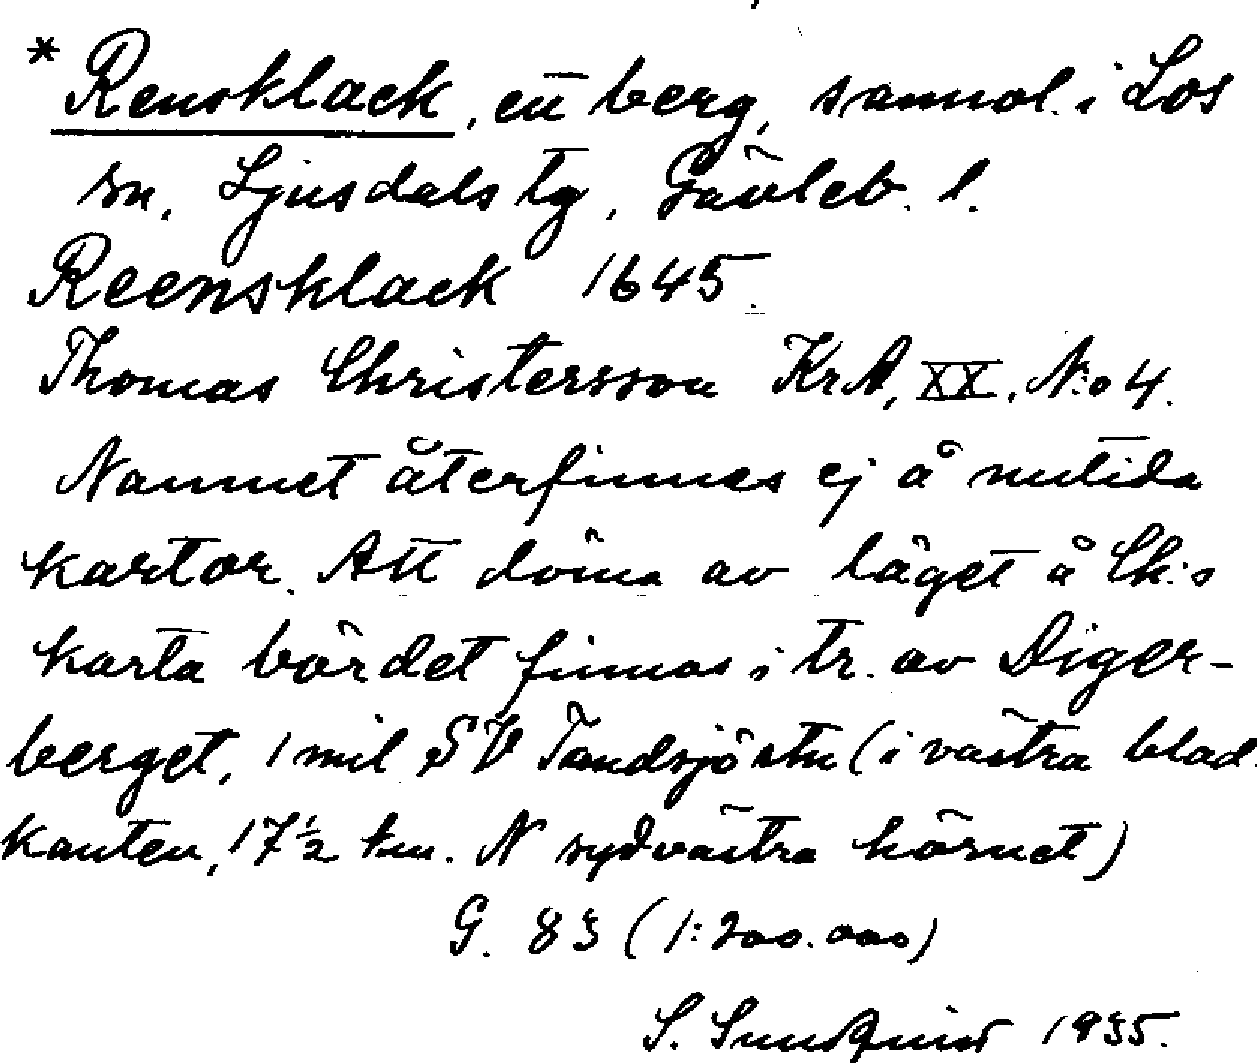 * Rensklack, ett berg, sannol. i Los
sn, Ljusdals tg, Gävleb. l.
Reensklack 1645.
Thomas Christersson KrA, XX, N:o 4.
Namnet återfinnes ej å nutida
kartor. Att döma av läget å Ch:s
karta bör det finnas i tr. av Diger-
berget, 1 mil SV Tandsjö stn (i västra blad-
kanten, 17½ km. N sydvästra hörnet)
G. 83 (1:200.000)
S. Sundquist 1935.